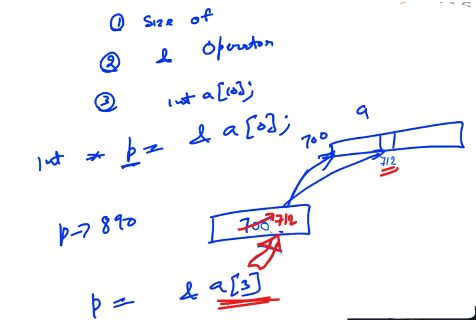 ① Size of
② & Operator
③ int a[10];
int * p = & a[0];
a
700
712
p→ 890
700 712
p = & a[3]